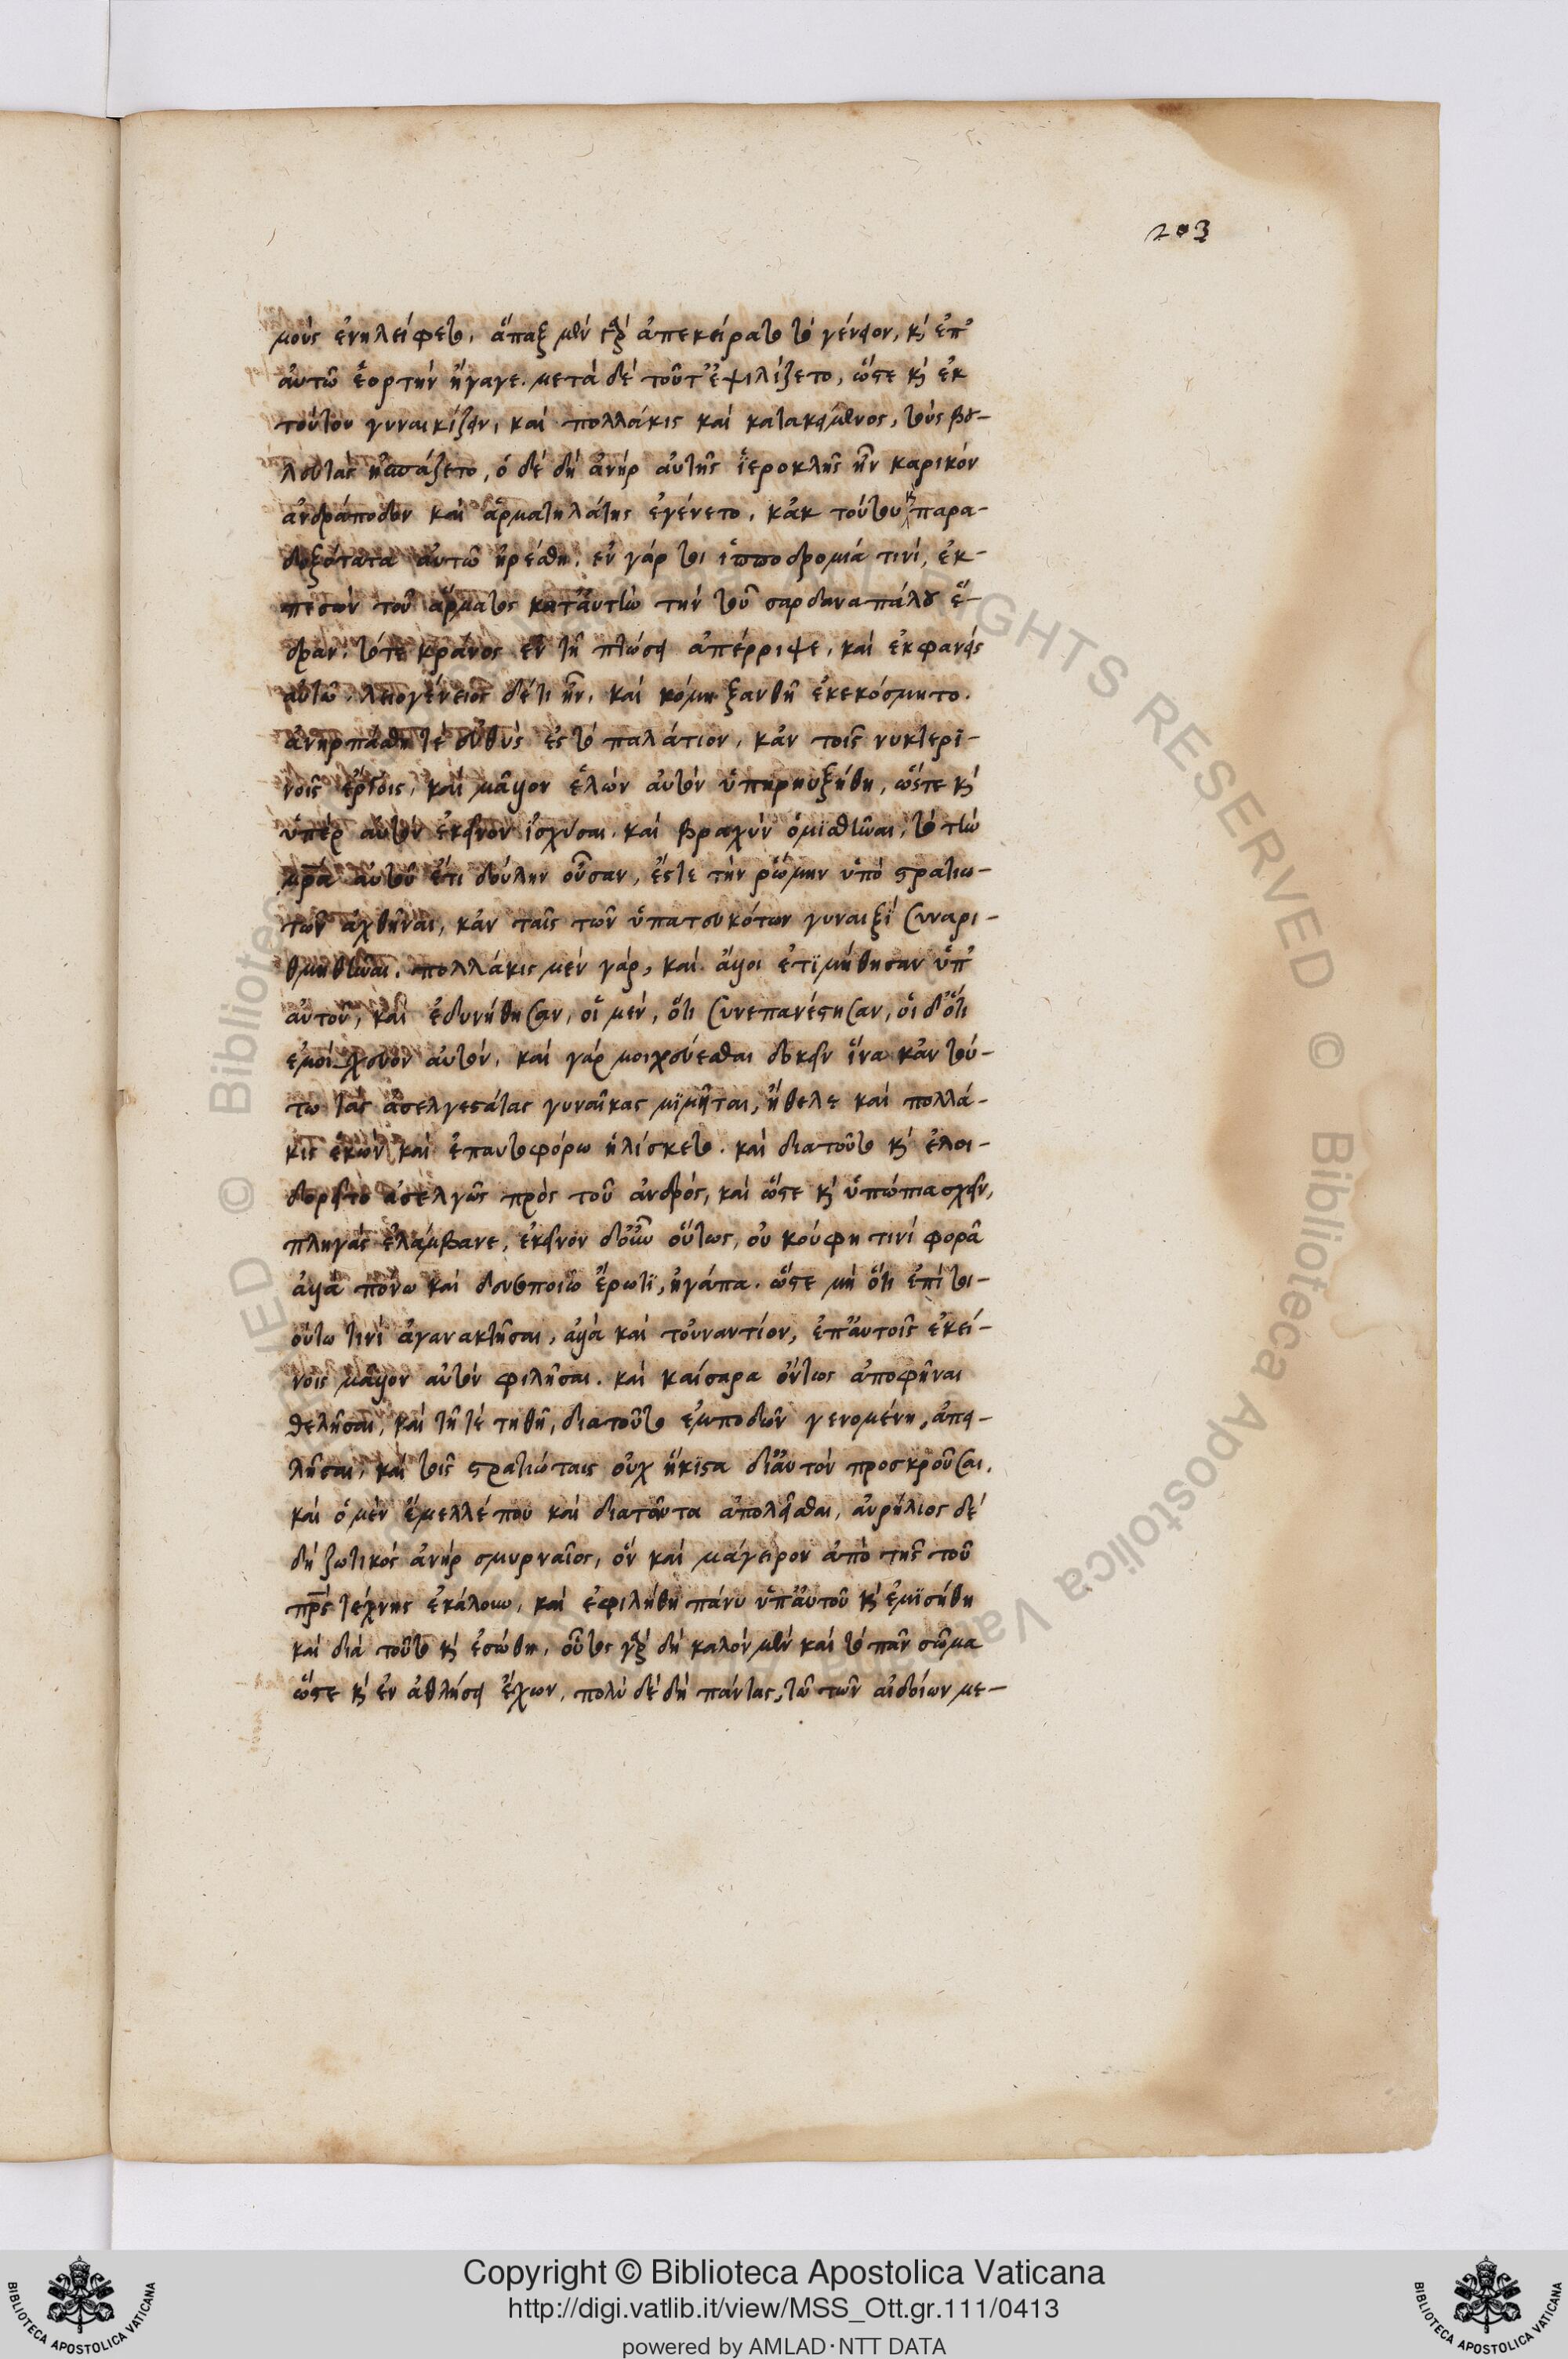 203
μοὺς ἐνηλείφετο. ἅπαξ μὲν γὰρ ἀπεκείρατο τὸ γένειον, καὶ ἐπ'
αὐτῶ ἑορτὴν ἤγαγε. μετὰ δὲ τοῦτ' ἐψιλίζετο, ὥστε καὶ ἐκ
τούτου γυναικίζειν, καὶ πολλάκις καὶ κατακείμενος, τοὺς βου-
λευτὰς ἠσπάζετο, ὁ δὲ δὴ ἀνὴρ αὐτῆς ἱεροκλῆς ἦν καρικὸν
ἀνδράποδον καὶ ἁρματηλάτης ἐγένετο. κἀκ τούτου καὶ παρα-
δοξότατα αὐτῶ ἠρέσθη. ἐν γάρ τοι ἱπποδρομία τινὶ, ἐκ-
πεσὼν τοῦ ἅρματος κατ' αὐτὴν τὴν τοῦ σαρδαναπάλου ἕ-
δραν. τότε κράνος ἐν τῆ πτώσει ἀπέρριψε, καὶ ἐκφανεὶς
αὐτῶ. λειογένειος δ' ἔτι ἦν, καὶ κόμη ξανθῆ ἐκεκόσμητο.
ἀνηρπάσθη τὲ εὐθὺς ἐς τὸ παλάτιον, κἀν τοῖς νυκτερι-
νοῖς ἔργοις, καὶ μᾶλλον ἑλὼν αὐτὸν ὑπερηυξήθη, ὥστε καὶ
ὑπὲρ αὐτὸν ἐκεῖνον ἰσχύσαι. καὶ βραχὺν ὁμισθῆναι, τὸ τὴν
μρα αὐτοῦ ἔτι δούλην οὖσαν, ἔστε τὴν ῥώμην ὑπὸ στρατιω-
τῶν ἀχθῆναι, κἀν ταῖς τῶν ὑπατευκότων γυναιξὶ συναρι-
θμηθῆναι. πολλάκις μὲν γὰρ, καὶ ἄλλοι ἐτιμήθησαν ὑπ'
αὐτοῦ, καὶ ἐδυνήθησαν, οἱ μὲν, ὅτι συνεπανέστησαν, οἱ δ' ὅτι
ἐμοίχευον αὐτὸν. καὶ γὰρ μοιχεύεσθαι δοκεῖν ἵνα κἀν τού-
τω τὰς ἀσελγεστάτας γυναῖκας μιμῆται, ἤθελε καὶ πολλά-
κις ἑκὼν καὶ ἐπαυτοφόρω ἡλίσκετο. καὶ διατοῦτο καὶ ἐλοι-
δορεῖτο ἀσελγῶς πρὸς τοῦ ἀνδρὸς, καὶ ὥστε καὶ ὑπώπια σχεῖν,
πληγὰς ἐλάμβανε, ἐκεῖνον δ' οὖν οὕτως, οὐ κούφη τινὶ φορᾶ
ἀλλὰ πόνω καὶ δευσποιῶ ἔρωτι, ἠγάπα. ὥστε μὴ ὅτι ἐπὶ τοι-
ούτω τινὶ ἀγανακτῆσαι, ἀλλὰ καὶ τοὐναντίον, ἐπ' αὐτοῖς ἐκεί-
νοις μᾶλλον αὐτὸν φιλῆσαι. καὶ καίσαρα ὄντως ἀποφῆναι
θελῆσαι, καὶ τῆ τὲ τηθῆ, διατοῦτο ἐμποδὼν γενομένη, ἀπει-
λῆσαι, καὶ τοῖς στρατιώταις οὐχ ἥκιστα δι' αὐτὸν προσκροῦσαι.
καὶ ὁ μὲν ἔμελλέ που καὶ διατοῦτα ἀπολεῖσθαι, αὐρήλιος δὲ
δὴ ζωτικὸς ἀνὴρ σμυρναῖος, ὃν καὶ μάγειρον ἀπὸ τῆς τοῦ
πρς τέχνης ἐκάλουν, καὶ ἐφιλήθη πάνυ ὑπ' αὐτοῦ καὶ ἐμισήθη
καὶ διὰ τοῦτο καὶ ἐσώθη, οὗτος γὰρ δὴ καλὸν μὲν καὶ τὸ πᾶν σῶμα
ὥστε καὶ ἐν ἀθλήσει ἔχων, πολὺ δὲ δὴ πάντας, τῶ τῶν αἰδοίων με-
Copyright © Biblioteca Apostolica Vaticana
http://digi.vatlib.it/view/MSS_Ott.gr.111/0413
powered by AMLAD·NTT DATA